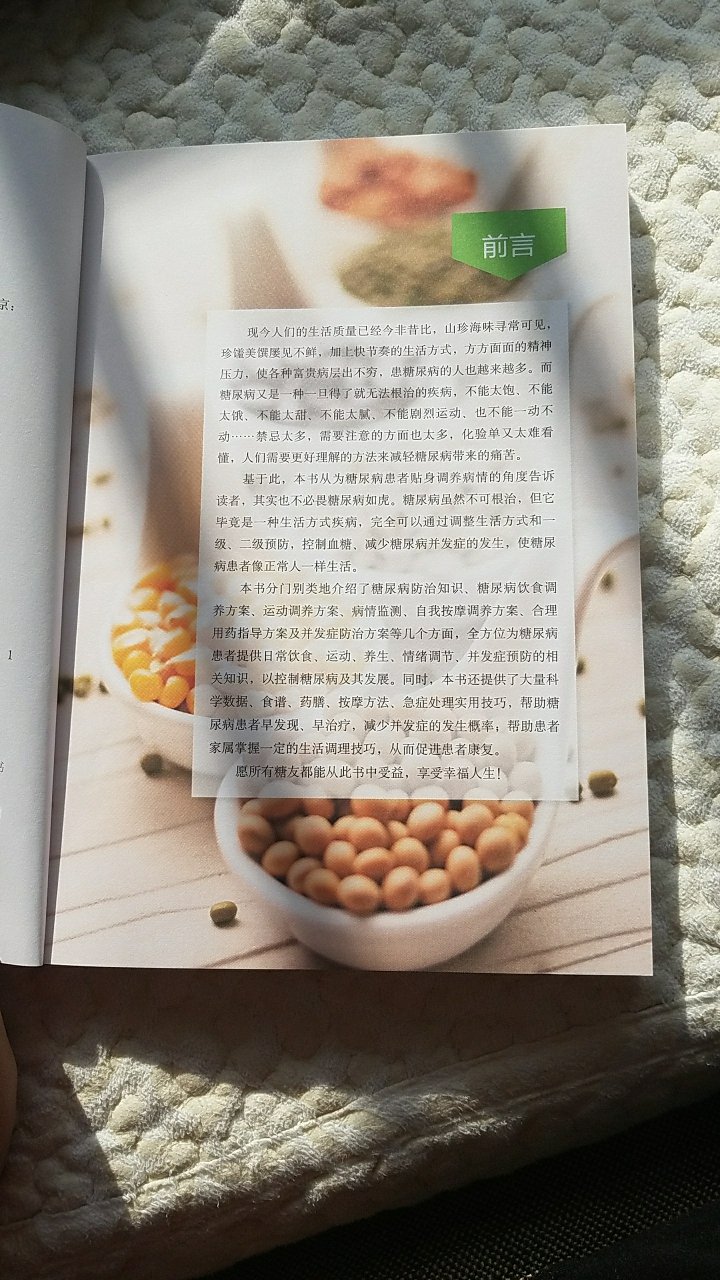 前言
现今人们的生活质量已经今非昔比，山珍海味寻常可见，
珍馐美馔屡见不鲜，加上快节奏的生活方式，方方面面的精神
压力，使各种富贵病层出不穷，患糖尿病的人也越来越多。而
糖尿病又是一种一旦得了就无法根治的疾病，不能太饱、不能
太饿、不能太甜、不能太腻、不能剧烈运动、也不能一动不
动……禁忌太多，需要注意的方面也太多，化验单又太难看
懂，人们需要更好理解的方法来减轻糖尿病带来的痛苦。
基于此，本书从为糖尿病患者贴身调养病情的角度告诉
读者，其实也不必畏糖尿病如虎。糖尿病虽然不可根治，但它
毕竟是一种生活方式疾病，完全可以通过调整生活方式和一
级、二级预防，控制血糖、减少糖尿病并发症的发生，使糖尿
病患者像正常人一样生活。
本书分门别类地介绍了糖尿病防治知识、糖尿病饮食调
养方案、运动调养方案、病情监测、自我按摩调养方案、合理
用药指导方案及并发症防治方案等几个方面，全方位为糖尿病
患者提供日常饮食、运动、养生、情绪调节、并发症预防的相
关知识，以控制糖尿病及其发展。同时，本书还提供了大量科
学数据、食谱、药膳、按摩方法、急症处理实用技巧，帮助糖
尿病患者早发现、早治疗，减少并发症的发生概率；帮助患者
家属掌握一定的生活调理技巧，从而促进患者康复。
愿所有糖友都能从此书中受益，享受幸福人生！
京：
1